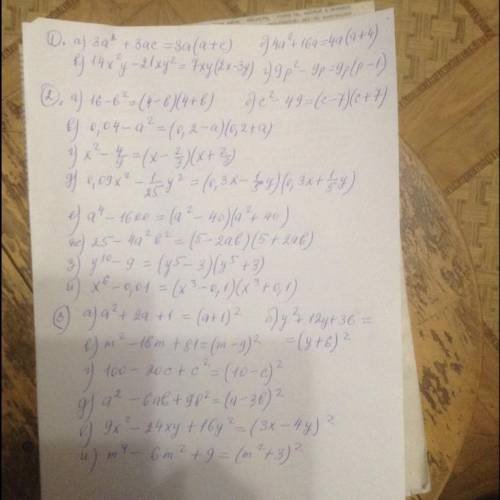 ①. а) 3a² + 3ac = 3a(a+c) б) 4a² + 16a = 4a(a+4)
в) 14x²y - 21xy² = 7xy(2x-3y) г) 9p² - 9p = 9p(p-1)
②. а) 16 - b² = (4-b)(4+b) б) c² - 49 = (c-7)(c+7)
в) 0,04 - a² = (0,2-a)(0,2+a)
г) x² - 4/9 = (x - 2/3)(x + 2/3)
д) 0,09x² - 1/25 y² = (0,3x - 1/5 y)(0,3x + 1/5 y)
е) a⁴ - 1600 = (a² - 40)(a² + 40)
ж) 25 - 4a²b² = (5-2ab)(5+2ab)
з) y¹⁰ - 9 = (y⁵ - 3)(y⁵ + 3)
и) x⁶ - 0,01 = (x³ - 0,1)(x³ + 0,1)
③ а) a² + 2a + 1 = (a+1)² б) y² + 12y + 36 =
= (y+6)²
в) m² - 18m + 81 = (m-9)²
г) 100 - 20c + c² = (10-c)²
д) a² - 6ab + 9b² = (a-3b)²
9x² - 24xy + 16y² = (3x-4y)²
m⁴ - 6m² + 9 = (m²+3)²